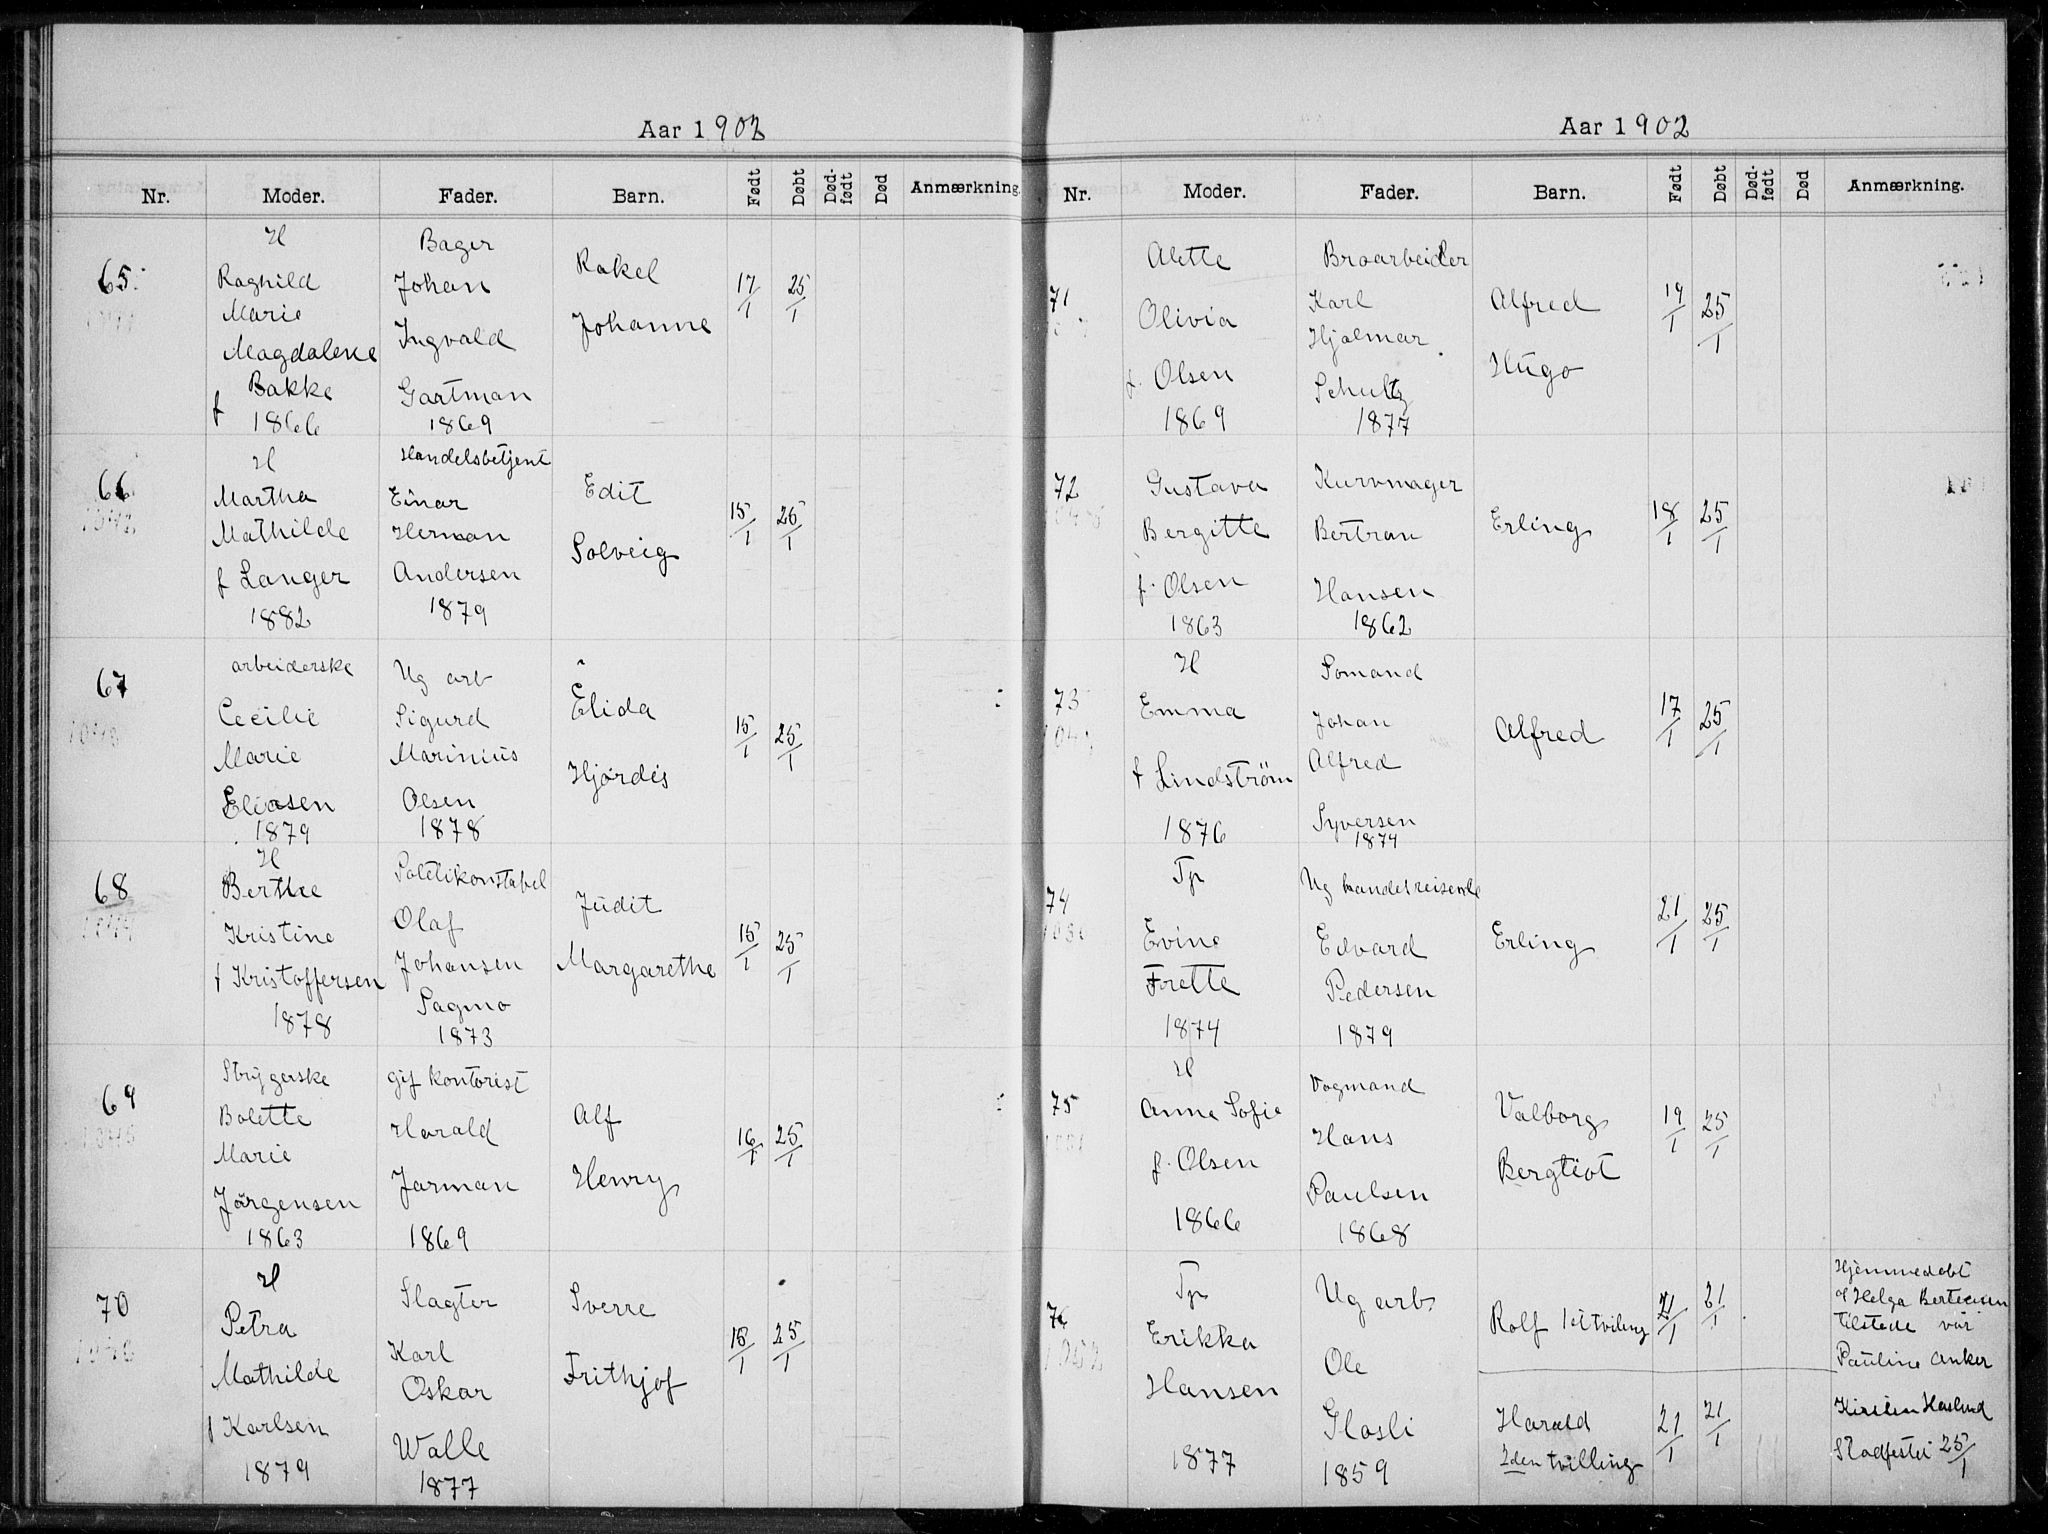 Aar 1902
Nr. Moder. Fader. Barn. Født Døbt Død-født Død Anmærkning.
65
H
Raghild
Marie
Magdalene
f Bakke
1866
Bager
Johan
Ingvald
Gartman
1869
Rakel
Johanne
17/1 25/1
66
H
Martha
Mathilde
f Langer
1882
Handelsbetjent
Einar
Herman
Andersen
1879
Edit
Solveig
15/1 25/1
67
arbeiderske
Cecilie
Marie
Eliasen
1879
Ug arb
Sigurd
Marinius
Olsen
1878
Elida
Hjørdis
15/1 25/1
68
H
Berthe
Kristine
f Kristoffersen
1878
Politikonstabel
Olaf
Johansen
Sagmo
1873
Judit
Margarethe
15/1 25/1
69
Strygerske
Bolette
Marie
Jørgensen
1863
gif Kontorist
Harald
Jarman
1869
Alf
Henry
16/1 25/1
70
H
Petra
Mathilde
f Karlsen
1879
Slagter
Karl
Oskar
Walle
1877
Sverre
Frithjof
15/1 25/1
Aar 1902
Nr. Moder. Fader. Barn. Født Døbt Død-født Død Anmærkning.
71
Alette
Olivia
f. Olsen
1869
Broarbeider
Karl
Hjalmar
Schultz
1877
Alfred
Hugo
19/1 25/1
72
Gustava
Bergitte
f. Olsen
1863
Kurvmager
Bertran
Hansen
1862
Erling
18/1 25/1
73
H
Emma
f Lindström
1876
Sømand
Johan
Alfred
Syversen
1874
Alfred
17/1 25/1
74
Tp
Evine
Frette
1874
Ug handelreisende
Edvard
Pedersen
1879
Erling
21/1 25/1
75
H
Anna Sofie
f. Olsen
1866
Vogmand
Hans
Paulsen
1868
Valborg
Bergliot
19/1 25/1
76
Tp
Erikka
Hansen
1877
Ug arb
Ole
Glosli
1859
Rolf 1st tviling
21/1 21/1
Hjemmedøbt
af Helga Bertelsen
tilstede var
Pauline Anker
Harald
2den tvilling
21/1 21/1
Kirsten Haslund
Stadfestet 25/1